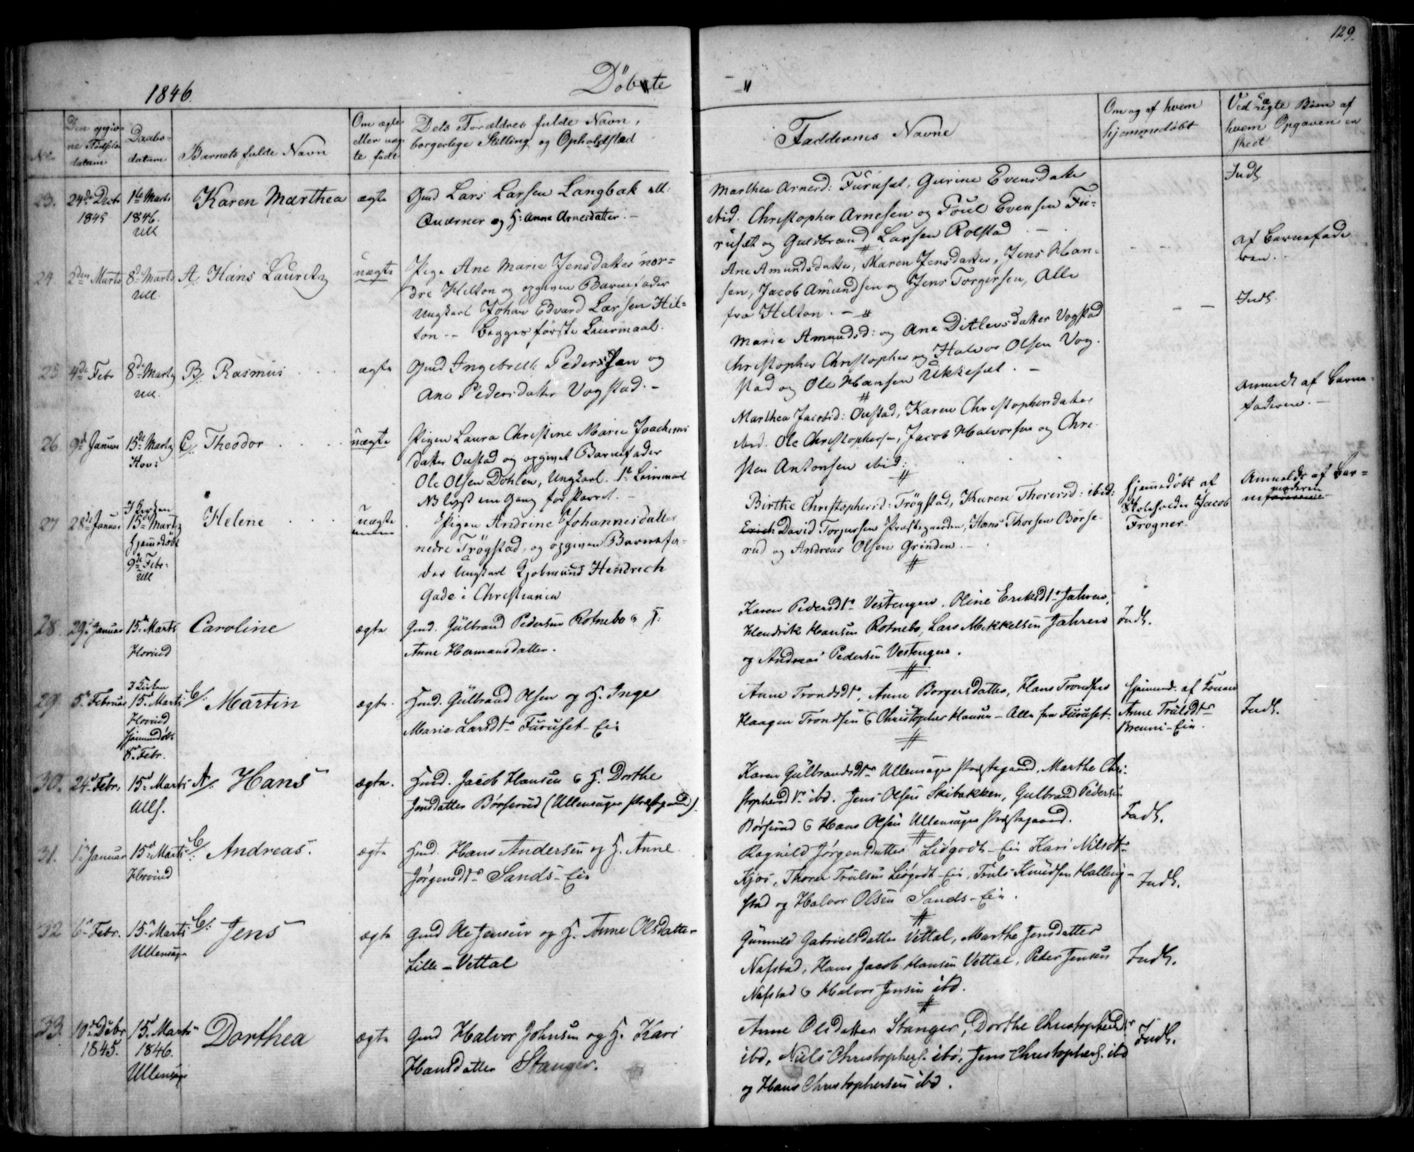 129.
1846.
Døbte
No.
Den opgivne Fødselsdatum
Daabsdatum
Barnets fulde Navn
Om ægte eller uægte født
Dets Forældres fulde Navn, borgerlige Stilling og Opholdsted
Faddernes Navne
Om og af hvem hjemmedøbt
23. 24de Decbr 1845 1ste Marts 1846. Ull Karen Marthea ægte
Gmd Lars Larsen Langbak
og H: Anne Arnesdatter. -
Marthea Arnesd: Furuset, Gurine Evensdatter
ibid. Christopher Arnesen og Poul Evensen Fu-
ruset og Guldbrand Larsen Rolstad
Indt.
24 2den Marts 8de Marts Ull A. Hans Lauretz uægte
Pige Ane Marie Jensdatter nor-
dre Helton og opgiven Barnefader
Ungkarl Johan Edvard Larsen Hel-
ton - Begges første Leiermaal.
Ane Amundsdatter, Maren Jensdatter, Jens Han-
sen, Jacob Amundsen og Jens Torgersen, Alle
fra Helton. -
af Barnefade
ren. -
25 4de Febr 8de Marts Ull. B. Rasmus ægte
Gmd Ingebrett Pedersen og
Ane Pedersdatter Vogstad. -
Marie Amundsd: og Ane Ditlevsdatter Vogstad
Christopher Christopher og Halvor Olsen Vog-
stad og Ole Hansen Ukkestad. -
Indt.
26 9de Januar 15de Marts Hovi C. Theodor uægte
Pigen Laura Christine Marie Joachims
datter Onstad og opgivet Barnefader
Ole Olsen Dohlen, Ungkarl. 1ste Leiermaal
Marthea Onstad, Karen Christophersdatter
ibid. Ole Christophersen, Jacob Halvorsen og Chri-
sten Antonsen ibid:
anmeldt af Barne-
faderen. -
27 28de Januar 15de Marts hjemmedøbt 9de Febr. Ull Helene uægte
Pigen Andrine Johannesdatter
nedre Trøgstad, og opgiven Barnefa-
der Ungkarl Kjøbmand Hendrich
Gade i Christiania
Birthe Christophersd: Trøgstad, Karen Thoresd: ibid:
David Torgersen Præstegaarden, Hans Thoesen Børse-
rud og Andreas Olsen Grinden. -
Hjemmedøbt af
Skoleholder Jacob
Frogner.
Anmeldt af Bar-
28. 29de Januar 15de Marts Hovind Caroline ægte
Gmd. Gulbrand Pedersen Rotnebo & H.
Anne Hermansdatter.
Karen Pedersdtr Vestengen. Oline Eriksdtr Jahren,
Hendrik Hansen Rotnebo, Lars Mikkelsen Jahren
og Andreas Pedersen Vestengen.
Indt.
29. 5te Februar 15de Marts Hovind hjemmedøbt 8de Febr. C. Martin ægte.
Hmd. Gulbrand Olsen og H. Inge
Marie Larsdtr Furuset-Eie
Anne Trondsdtr, Anne Borgersdatter, Hans Trondsen
Haagen Trondsen & Christopher Hansen - Alle fra Furuset
hjemmed. af
Anne Truldsdtr
-Eie
Indt.
30. 24de Febr. 15de Marts Ulls. A. Hans ægte.
Hmd. Jacob Hansen & H. Dorthe
Jensdatter Børserud (Ullensager Præstegaard).
Karen Gulbrandsdtr Ullensager Præstegaard, Marthe Chri-
stophersdtr ibd. Jens Olsen Skibakken, Gulbrand Pedersen
Børserud & Hans Olsen Ullensager Præstegaard.
Fadt.
31. 1ste Januar 15de Marts Hovind C. Andreas. ægte
Hmd. Hans Andersen og H. Anne
Jørgensdtr Sands-Eie
Ragnild Jørgensdatter Lisgodt-Eie Kari Nilsdtr
Kjos, Thorer Trulsen Lisgodt-Eie, Truls Knudsen Halling-
stad og Halvor Olsen Sands-Eie.
Indt.
32 6te Febr. 15de Marts Ullensager C. Jens ægte
Gmd Ole Jensen og H. Anne Olsdatter
Lille-Vettal
Gunnild Gabrielsdatter Vettal, Marthe Jensdatter
Nafstad, Hans Jacob Hansen Vettal, Peder Jensen
Nafstad & Halvor Jensen ibd.
Indt.
33. 10de Decbr 1845. 15de Marts 1846. Ullensager Dorthea ægte
Gmd Halvor Johnsen og H. Kari
Hansdatter Stanger.
Anne Olsdatter Stanger, Dorthe Christophersdtr
ibd, Niels Christophers. ibd, Jens Christophers. ibd
og Hans Christophersen ibd.
Indt.